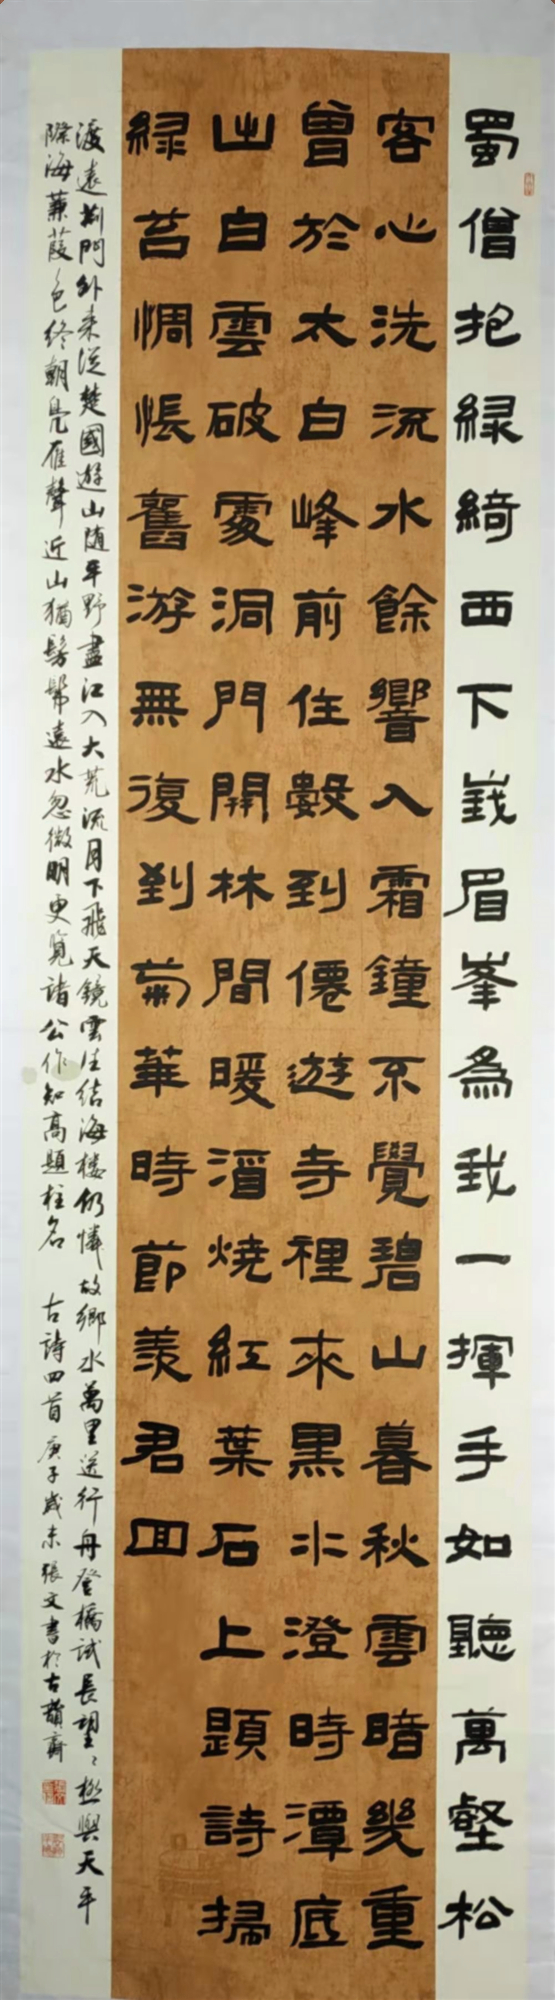 蜀僧抱緑綺西下峩眉峯為我一揮手如聽萬壑松
客心洗流水餘響入霜鐘不覺碧山暮秋雲暗幾重
曾於太白峰前住數到僊遊寺裡來黑水澄時潭底
出白雲破處洞門開林間暖酒燒紅葉石上題詩掃
緑苔惆悵舊游無復到菊華時節羨君回
渡遠荆門外来從楚國遊山随平野盡江入大荒流月下飛天鏡雲生结海楼仍憐故鄉水萬里送行舟登橋試長望〻極與天平
際海蒹葭色终朝鳧雁聲近山猶髣髴遠水忽微明更覽諸公作知高題柱名 古詩四首 庚子歲末張文書於古齋